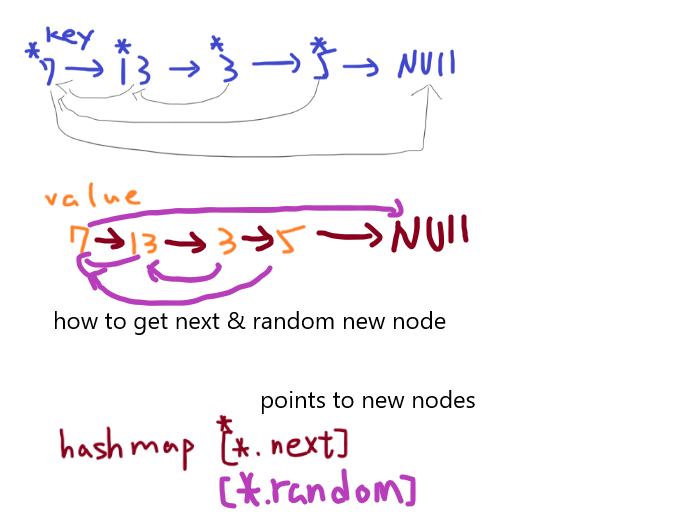 key
*7 → *13 → *3 → *5 → NUll
value
7 → 13 → 3 → 5 → NUll
how to get next & random new node
points to new nodes
hashmap [*.next]
[*.random]